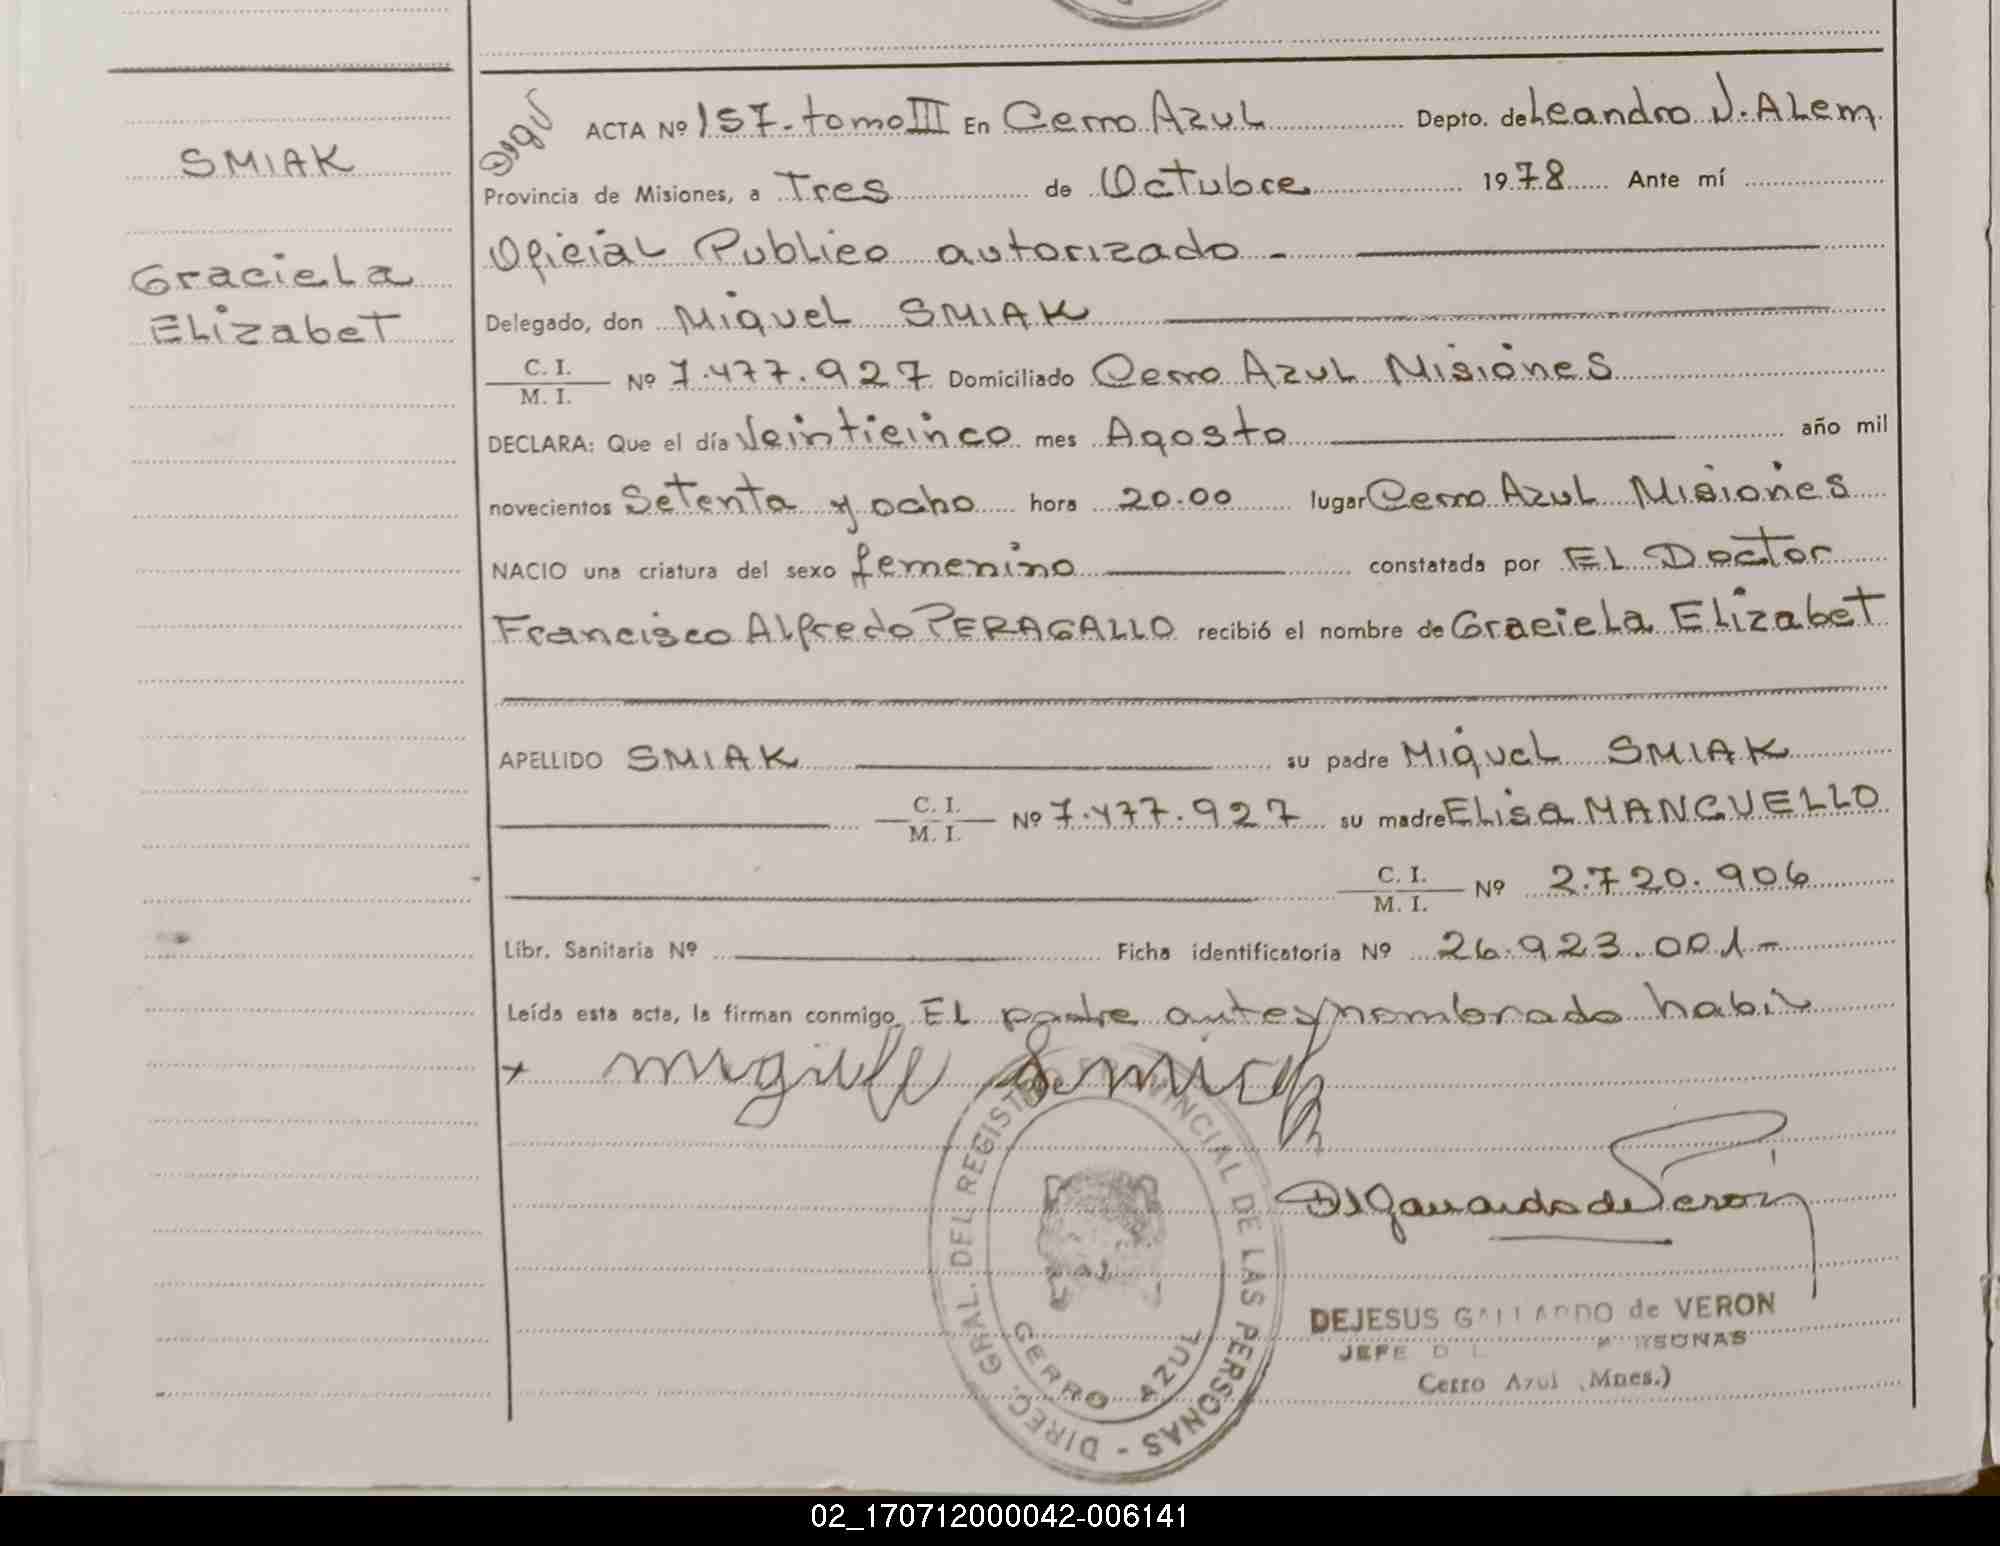 SMIAK
Graciela
Elizabet
ACTA Nº 157. tomo III En Cerro Azul Depto. de Leandro N. ALem
Provincia de Misiones, a Tres de Octubre 1978 Ante mí
Oficial Publico autorizado -
Delegado, don Miguel SMIAK
C. I.
M. I. Nº 7.477.927 Domiciliado Cerro Azul Misiones
DECLARA: Que el día Veinticinco mes Agosto año mil
novecientos Setenta y ocho hora 20.00 lugar Cerro Azul Misiones
NACIO una criatura del sexo femenino constatada por EL Doctor
Francisco Alfredo PERAGALLO recibió el nombre de Graciela Elizabet
APELLIDO SMIAK su padre Miguel SMIAK
C. I.
M. I. Nº 7.477.927 su madre Elisa MANCUELLO
C. I.
M. I. Nº 2.720.906
Libr. Sanitaria Nº Ficha identificatoria Nº 26.923.001-
Leída esta acta, la firman conmigo EL padre antes nombrado habil
DIREC. GRAL. DEL REGISTRO PROVINCIAL DE LAS PERSONAS -
CERRO AZUL
DEJESUS GALLARDO de VERON
JEFE PERSONAS
Cerro Azul (Mnes.)
02_170712000042-006141